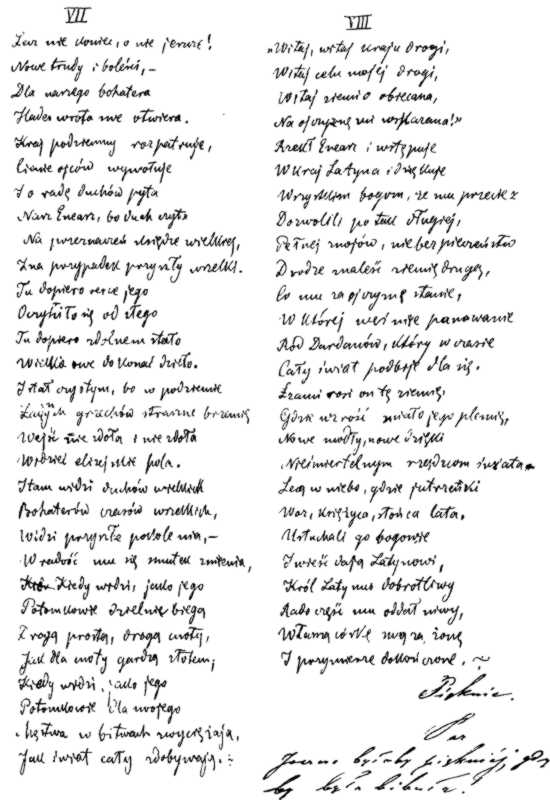 VII
Lecz nie koniec, o nie jeszcze!
Nowe trudy i boleści, –
Dla naszego bohatera
Hades wrota swe otwiera.
Kraj podziemny rozpatruje,
Cienie ojców wywołuje
I o radę duchów pyta
Nasz Eneasz, bo duch czyta
Na przeznaczeń księdze wielkiej,
Zna przypadek przyszły wszelki.
Tu dopiero serce jego
Oczyściło się od złego
Tu dopiero zdolnem stało
Wielkie owe dokonać dzieło.
I stał czystym, bo w podziemie
grzechów straszne brzemię
Wejść nie zdoła i nie zdoła
Widzieć elizejskie pola.
I tam widzi duchów wielkich
Bohaterów czasów wszelkich,
Widzi przyszłe pokolenia, –
W radość mu się smutek zmienia,
Kiedy widzi, jako jego
Potomkowie dzielnie biegą
Drogą prostą, drogą cnoty,
Jak dla cnoty gardzą złotem;
Kiedy widzi, jako jego
Potomkowie dla swojego
Męstwa w bitwach zwyciężają,
Jak świat cały zdobywają.
VIII
„Witaj, witaj kraju drogi,
Witaj celu mojej drogi,
Witaj ziemio obiecana,
Na ojczyznę mi wskazana!"
Rzekł Eneasz i wstępuje
W kraj Latyna i dziękuje
Wszystkim bogom, że mu przecie z
Dozwolili po tak długiej,
Pełnej znojów, niebezpieczeństw
Drodze znaleść ziemię drugą,
Co mu za ojczyznę stanie,
W której weźmie panowanie
Ród Dardanów, który w czasie
Cały świat podbije dla się.
Łzami rosi on tę ziemię,
Gdzie wzróść miało jego plemię,
Nowe modły, nowe dzięki
Nieśmiertelnym rządzcom świata
Lecą w niebo, gdzie jutrzeńki
Woz, księżyca, słońca lata.
Usłuchali go bogowie
I wieść dają Latynowi,
Król Latynus dobrotliwy
Rado część mu oddał niwy,
Własną córkę swą za żonę
I przymierze dokończone.
Pięknie.
Par
Jeszcze byłoby piękniej, gdy
by była bibuła!